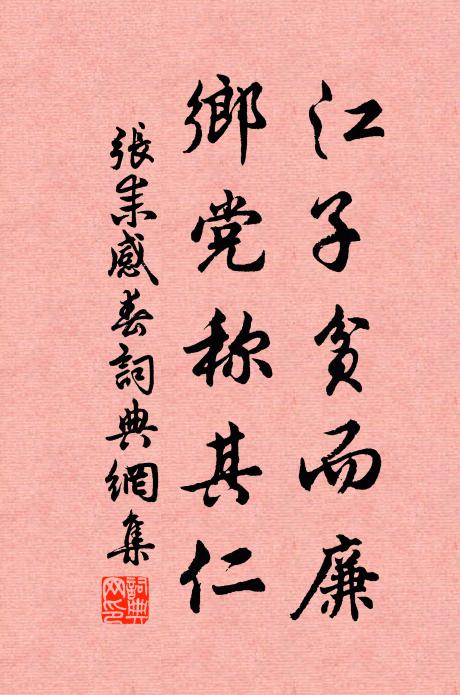 江子貧而廉
鄉党称其仁
張耒感春詞典網集
詞典网印